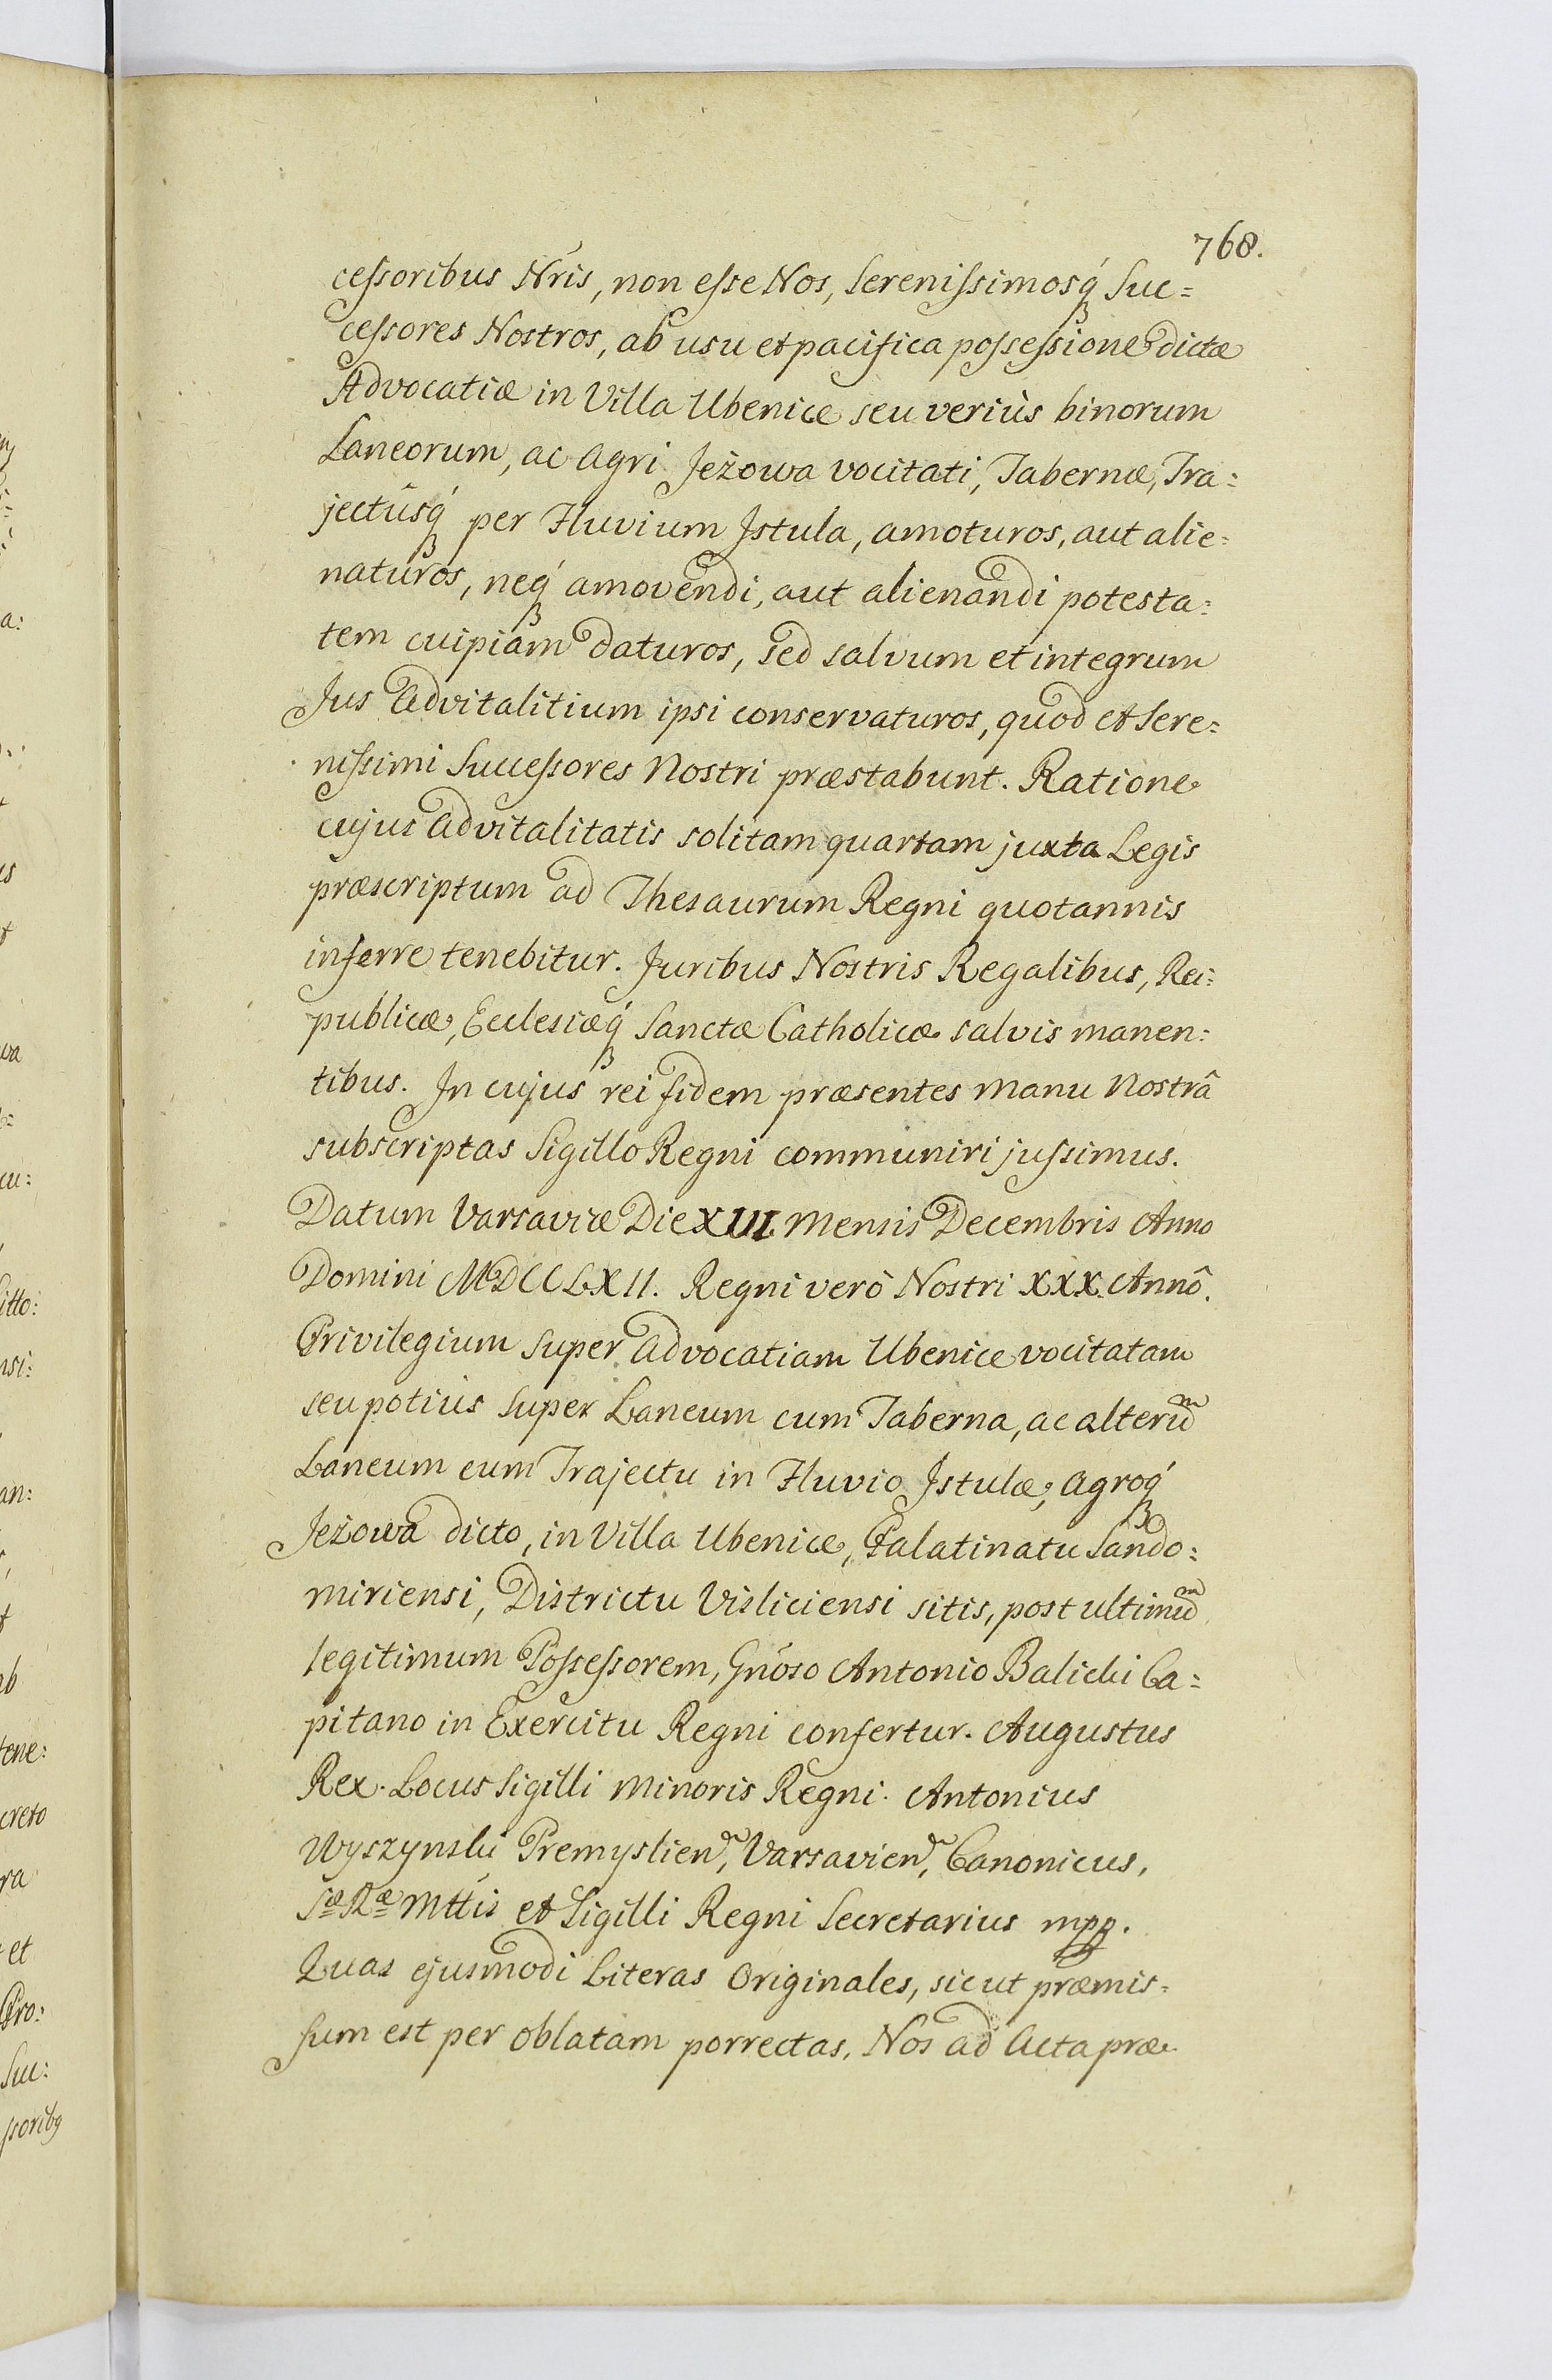 768.
cessoribus Nris, non esse Nos, Serenissimosq́ Suc=
cessores Nostros, ab usu et pacifica possessione dictæ
Advocatiæ in Villa Ubenice seu veriùs binorum
Laneorum, ac Agri Jeżowa vocitati, Tabernæ, Tra=
jectûsq́ per Fluvium Istula, amoturos, aut alie=
naturos, neq́ amovendi, aut alienandi potesta=
tem cuipiam daturos, sed salvum et integrum
Jus Advitalitium ipsi conservaturos, quod et Sere=
nissimi Successores Nostri præstabunt. Ratione
cujus Advitalitatis solitam quartam juxta Legis
præscriptum ad Thesaurum Regni quotannis
inferre tenebitur. Juribus Nostris Regalibus, Rei=
publicæ, Ecclesiæq́ Sanctæ Catholicæ salvis manen=
tibus. In cujus rei fidem præsentes Manu Nostrâ
subscriptas Sigillo Regni communiri jussimus.
Datum Varsaviæ Die XVI Mensis Decembris Anno
Domini MDCCLXII. Regni verò Nostri XXX. Annô.
Privilegium super Advocatiam Ubenice vocitatam
seu potiùs super Laneum cum Taberna, ac alterum
Laneum cum Trajectu in Fluvio Istulæ, Agroq́
Jeżowa dicto, in Villa Ubenice, Palatinatu Sando=
miriensi, Districtu Visliciensi sitis, post ultimum
legitimum Possessorem, Gnoso Antonio Balicki Ca=
pitano in Exercitu Regni confertur. Augustus
Rex. Locus Sigilli Minoris Regni. Antonius
Wyszynski Premyslien, Varsavien, Canonicus,
Sæ Ræ Mttis et Sigilli Regni Secretarius mpp.
Quas ejusmodi Literas Originales, sicut præmis=
sum est per oblatam porrectas, Nos ad Acta præ